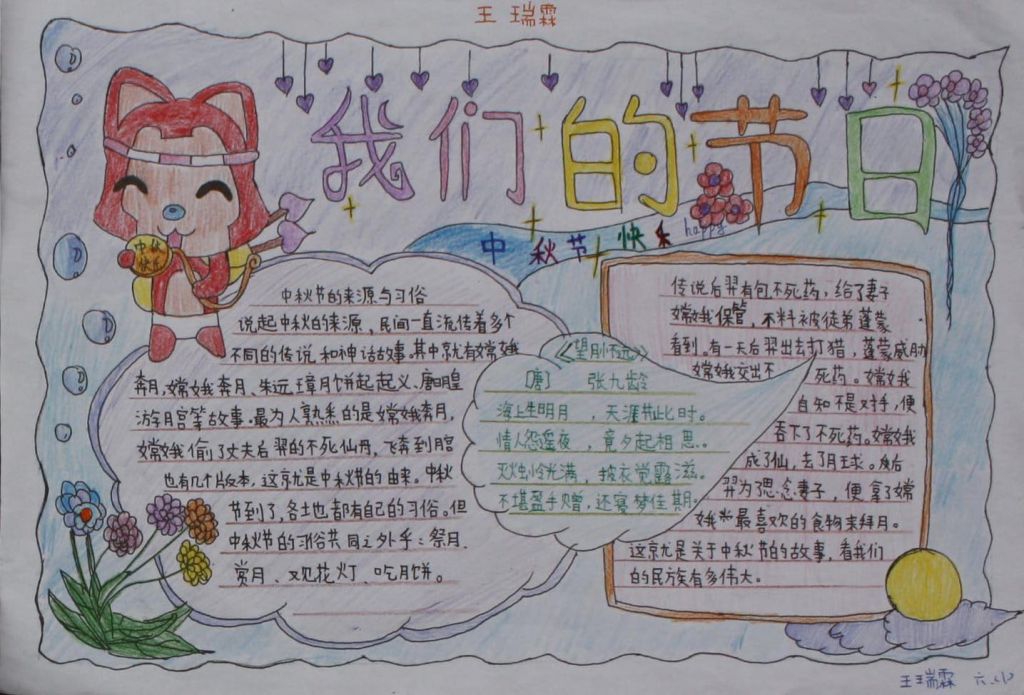 王瑞霖
我们的节日
中秋节快乐 happy
中秋
快乐
中秋节的来源与习俗
说起中秋的来源,民间一直流传着多个
不同的传说和神话故事。其中就有嫦娥
奔月,嫦娥奔月、朱远璋月饼起起义、唐明皇
游月宫等故事。最为人熟悉的是嫦娥奔月,
嫦娥偷了丈夫后羿的不死仙丹,飞奔到月宫
也有几个版本,这就是中秋节的由来。中秋
节到了,各土也都有自己的习俗。但
中秋节的习俗共同之外乎:祭月、
赏月、观花灯、吃月饼。
《望月怀远》
[唐] 张九龄
海上生明月,天涯共此时。
情人怨遥夜,竟夕起相思。
灭烛怜光满,披衣觉露滋。
不堪盈手赠,还寝梦佳期。
传说后羿有包不死药,给了妻子
嫦娥保管,不料被徒弟蓬蒙
看到。有一天后羿出去打猎,蓬蒙威胁
嫦娥交出不死药。嫦娥
自知不是对手,便
吞下了不死药。嫦娥
成了仙,去了月球。后
羿为了思念妻子,便拿了嫦
娥最喜欢的食物来拜月。
这就是关于中秋节的故事,看我们
的民族有多伟大。
王瑞霖 六.(1)